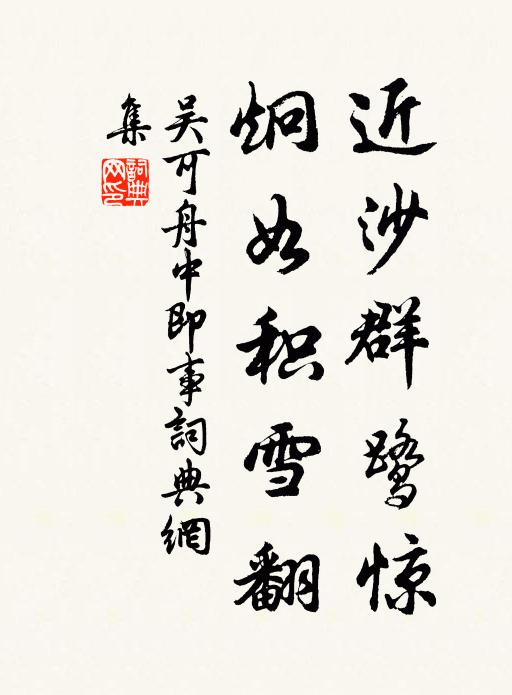 近沙群鹭惊
炯如积雪翻
吴可舟中即事詞典網
集
詞典网印